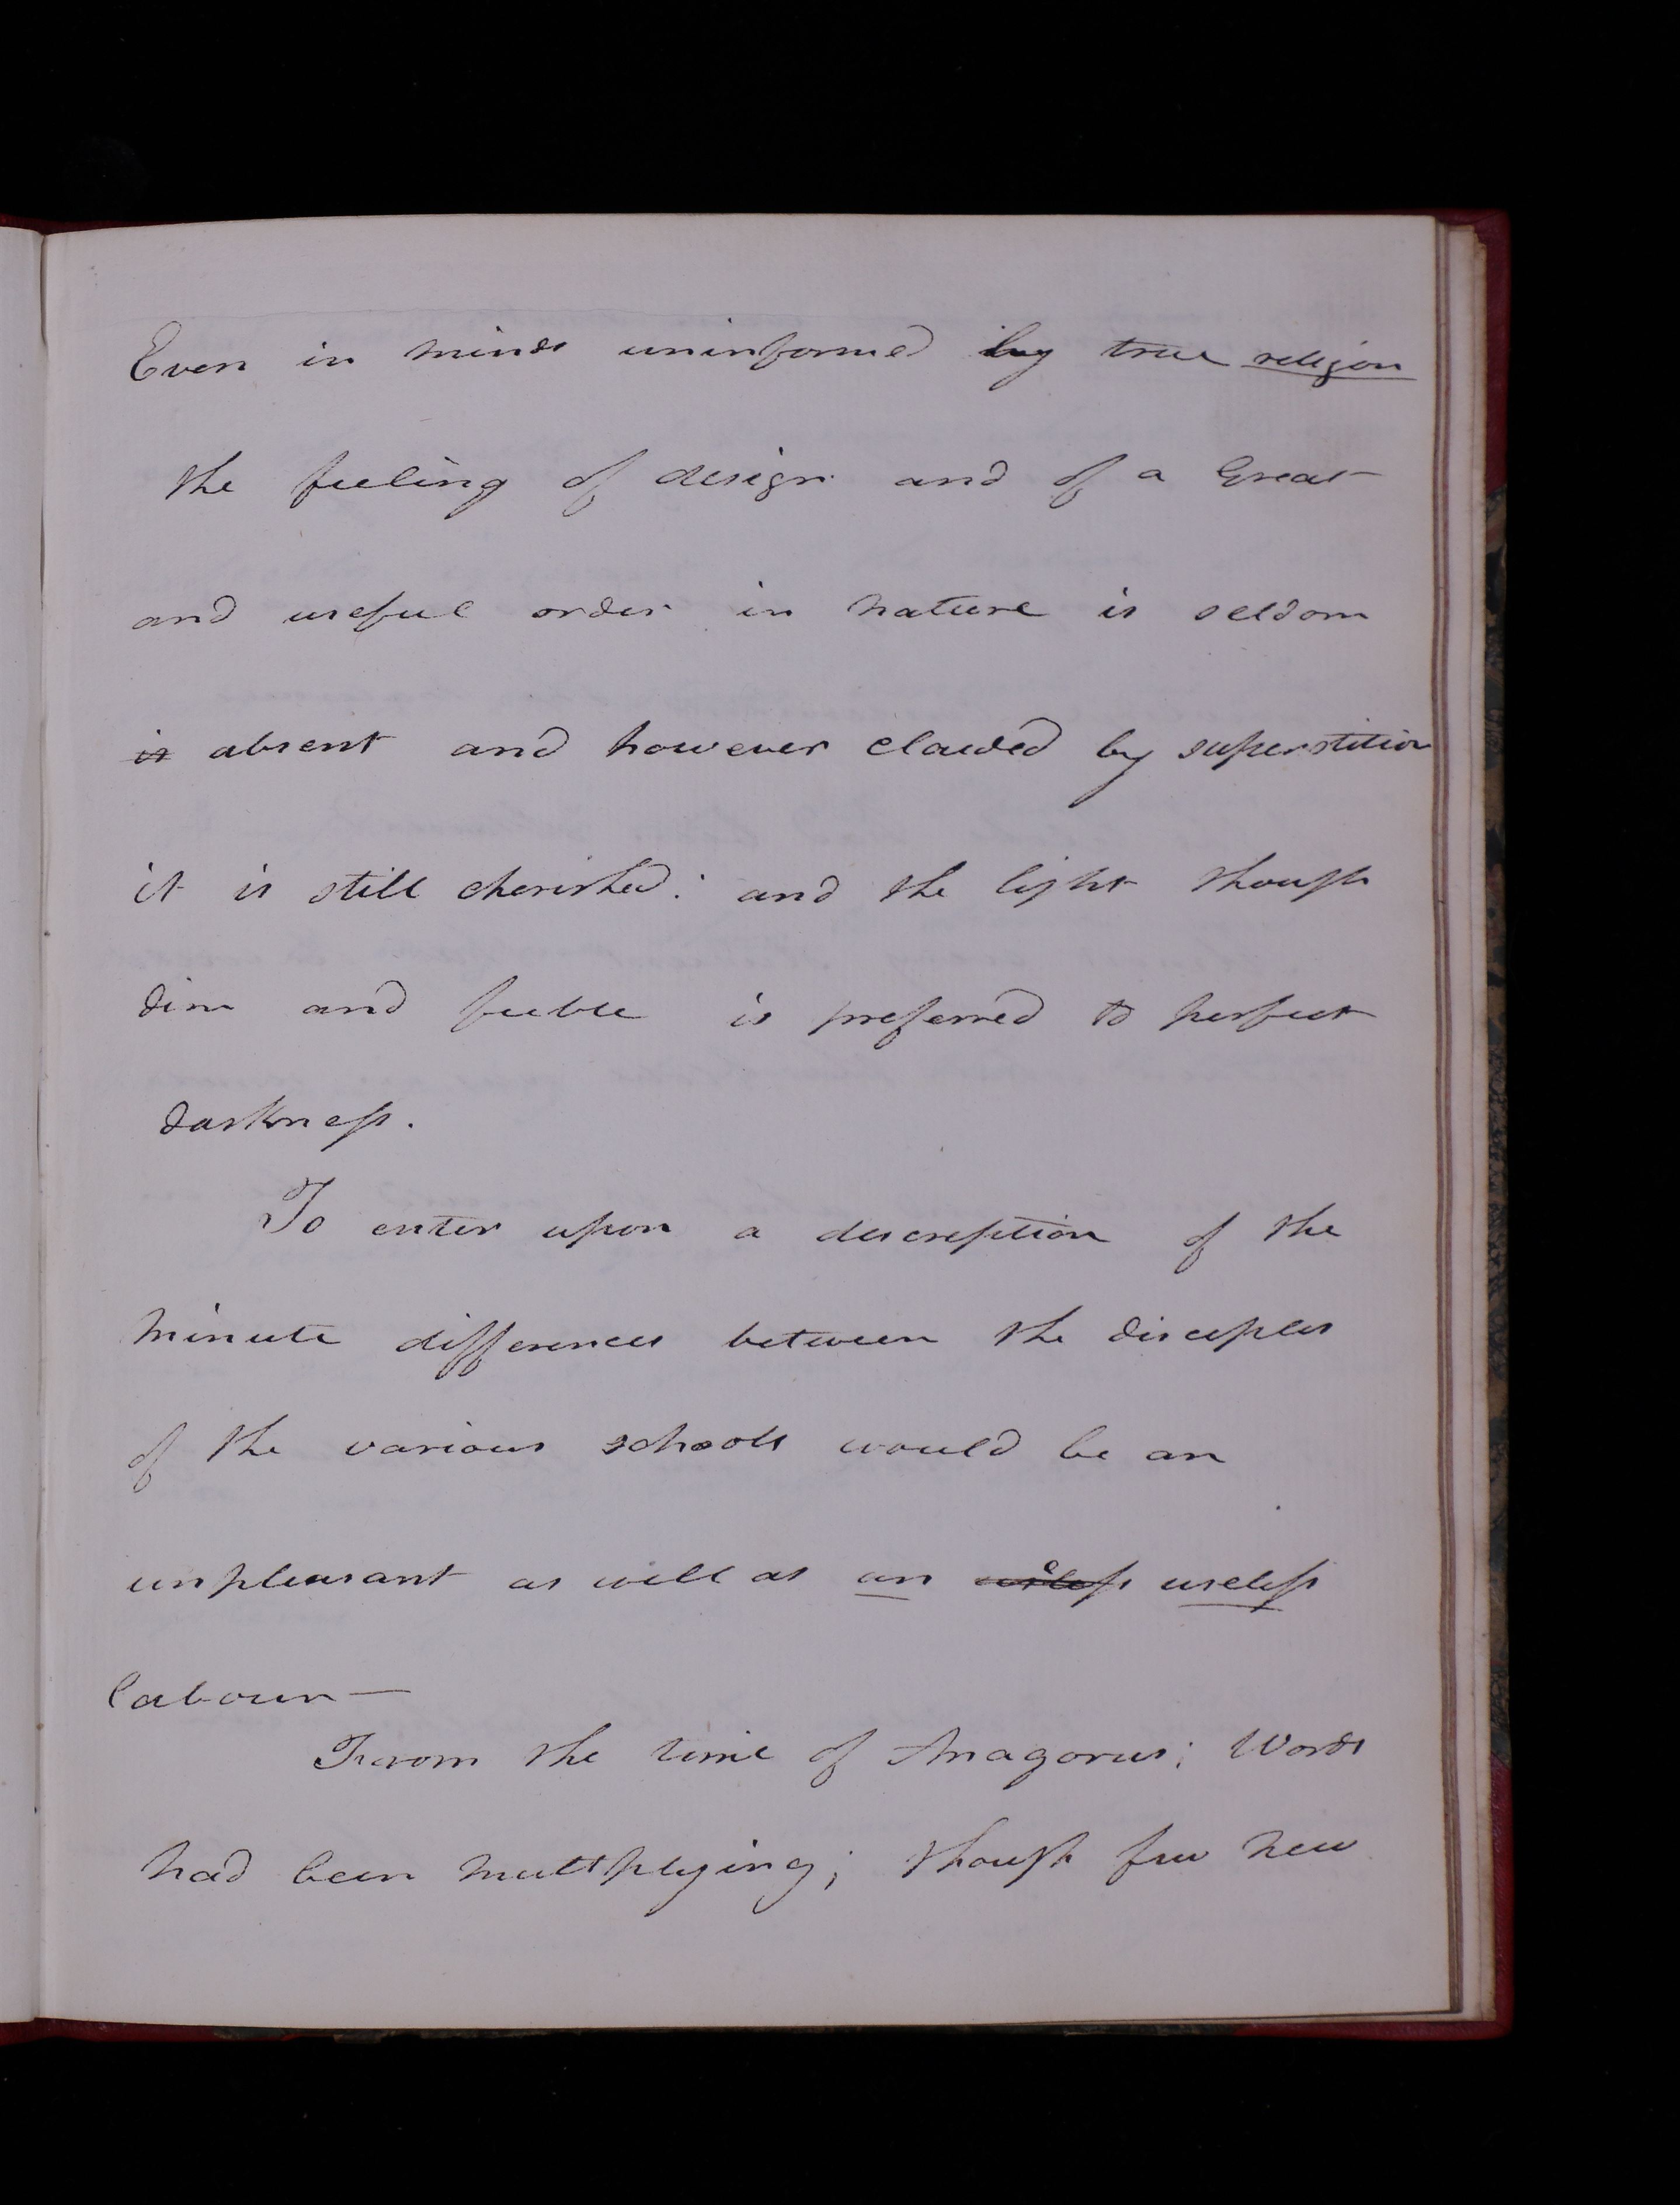 Even in minds uninformed by true religion
the feeling of design and of a Great
and useful order in nature is seldom
is absent and however clouded by superstition
it is still cherished: and the light though
dim and feeble is preferred to perfect
darkness.
To enter upon a description of the
minute differences between the disciples
of the various schools would be an
unpleasant as well as an useless useless
labour—
From the time of Anagorus; Words
had been multiplying; though few new